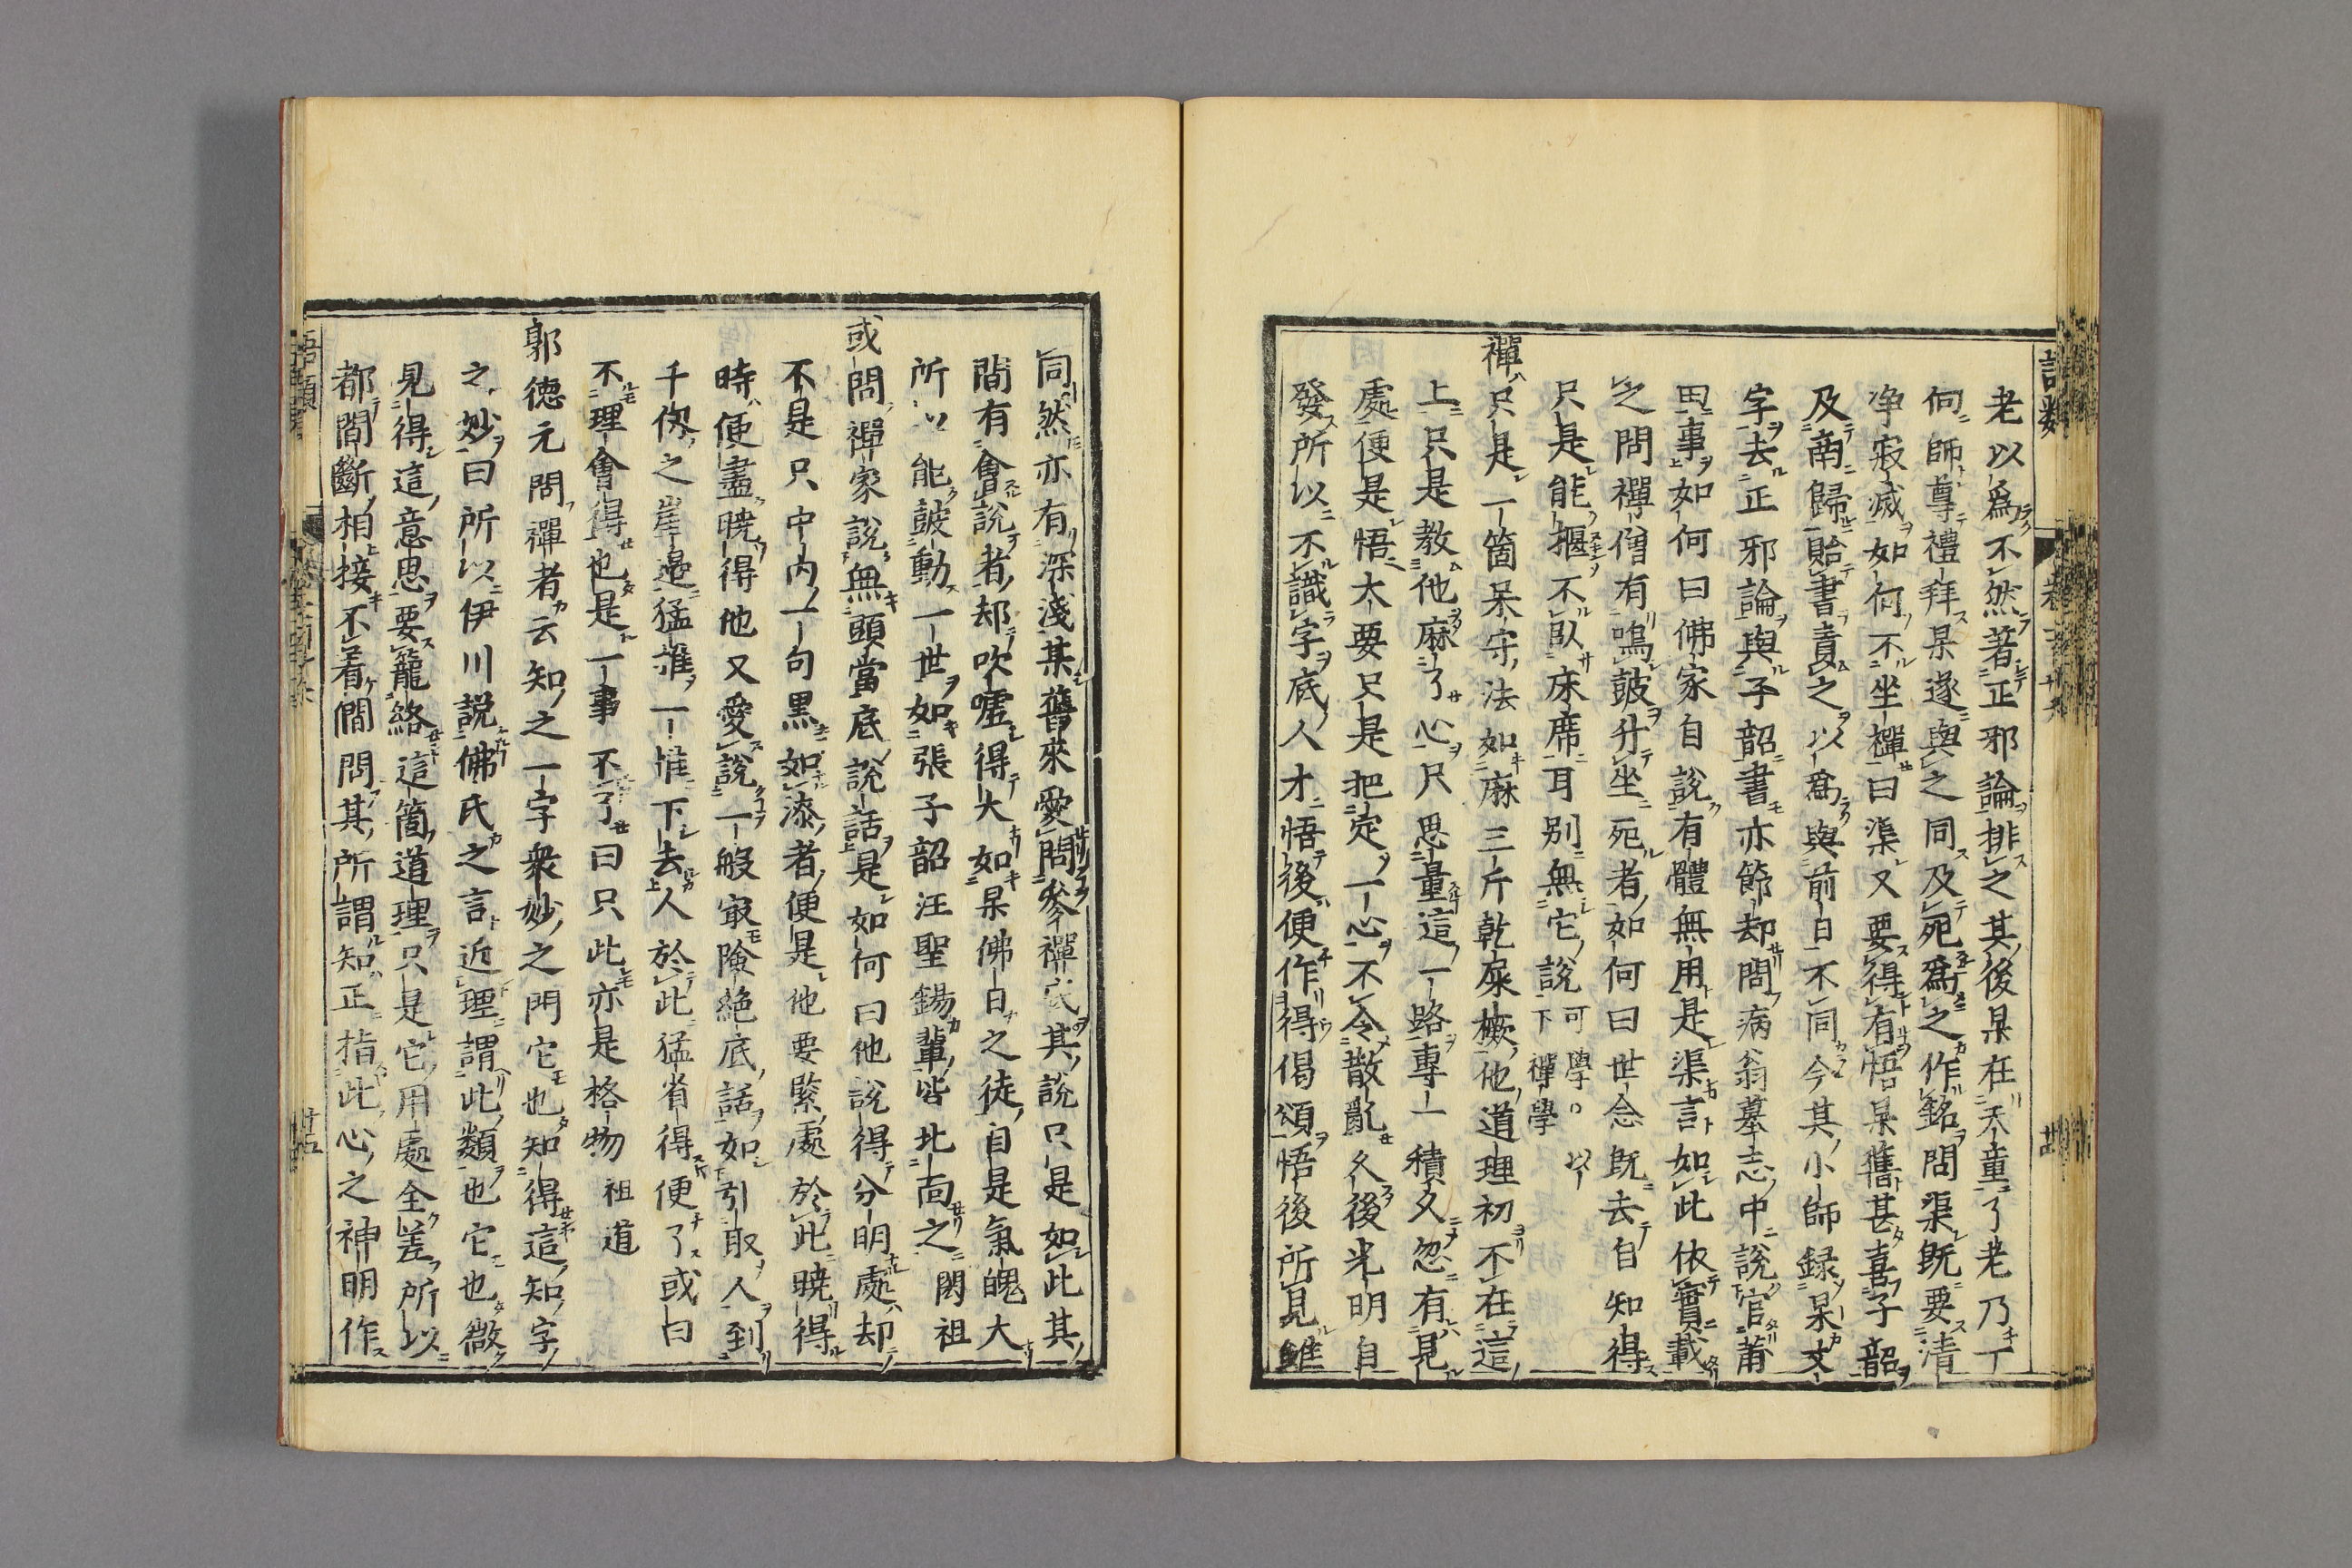 老以爲不然著正邪論排之其後杲在天童了老乃一
向師尊禮拜杲遂與之同及死爲之作銘問渠既要清
淨寂滅如何不坐禪曰渠又要得有悟杲舊甚喜子韶
及南歸貽書責之以爲與前日不同今其小師録杲文
字去正邪論與子韶書亦節却問病翁墓志中說官莆
田事如何曰佛家自說有體無用是渠言如此依實載
之問禪僧有鳴鼓升坐死者如何曰世念既去自知得
只是能掘不臥床席耳別無它說可學〇以下禪學
禪只是一箇呆守法如麻三斤乾屎橛他道理初不在這
上只是教他麻了心只思量這一路專一積久忽有見
處便是悟大要只是把定一心不令散亂久後光明自
發所以不識字底人才悟後便作得偈頌悟後所見雖
同然亦有深淺某舊來愛問參禪底其說只是如此其
間有會說者却吹噓得大如杲佛日之徒自是氣魄大
所以能鼓動一世如張子韶汪聖錫輩皆北面之閎祖
或問禪家說無頭當底說話是如何曰他說得分明處却
不是只中内一句黒如漆者便是他要緊處於此曉得
時便盡曉得他又愛說一般㝡險絶底話如引取人到
千仭之崖邉猛推一推下去人於此猛省得便了或曰
不理會得也是一事不了曰只此亦是格物祖道
郭德元問禪者云知之一字衆妙之門它也知得這知字
之妙曰所以伊川說佛氏之言近理謂此類也它也微
見得這意思要籠絡這箇道理只是它用處全差所以
都間斷相接不着僩問其所謂知正指此心之神明作